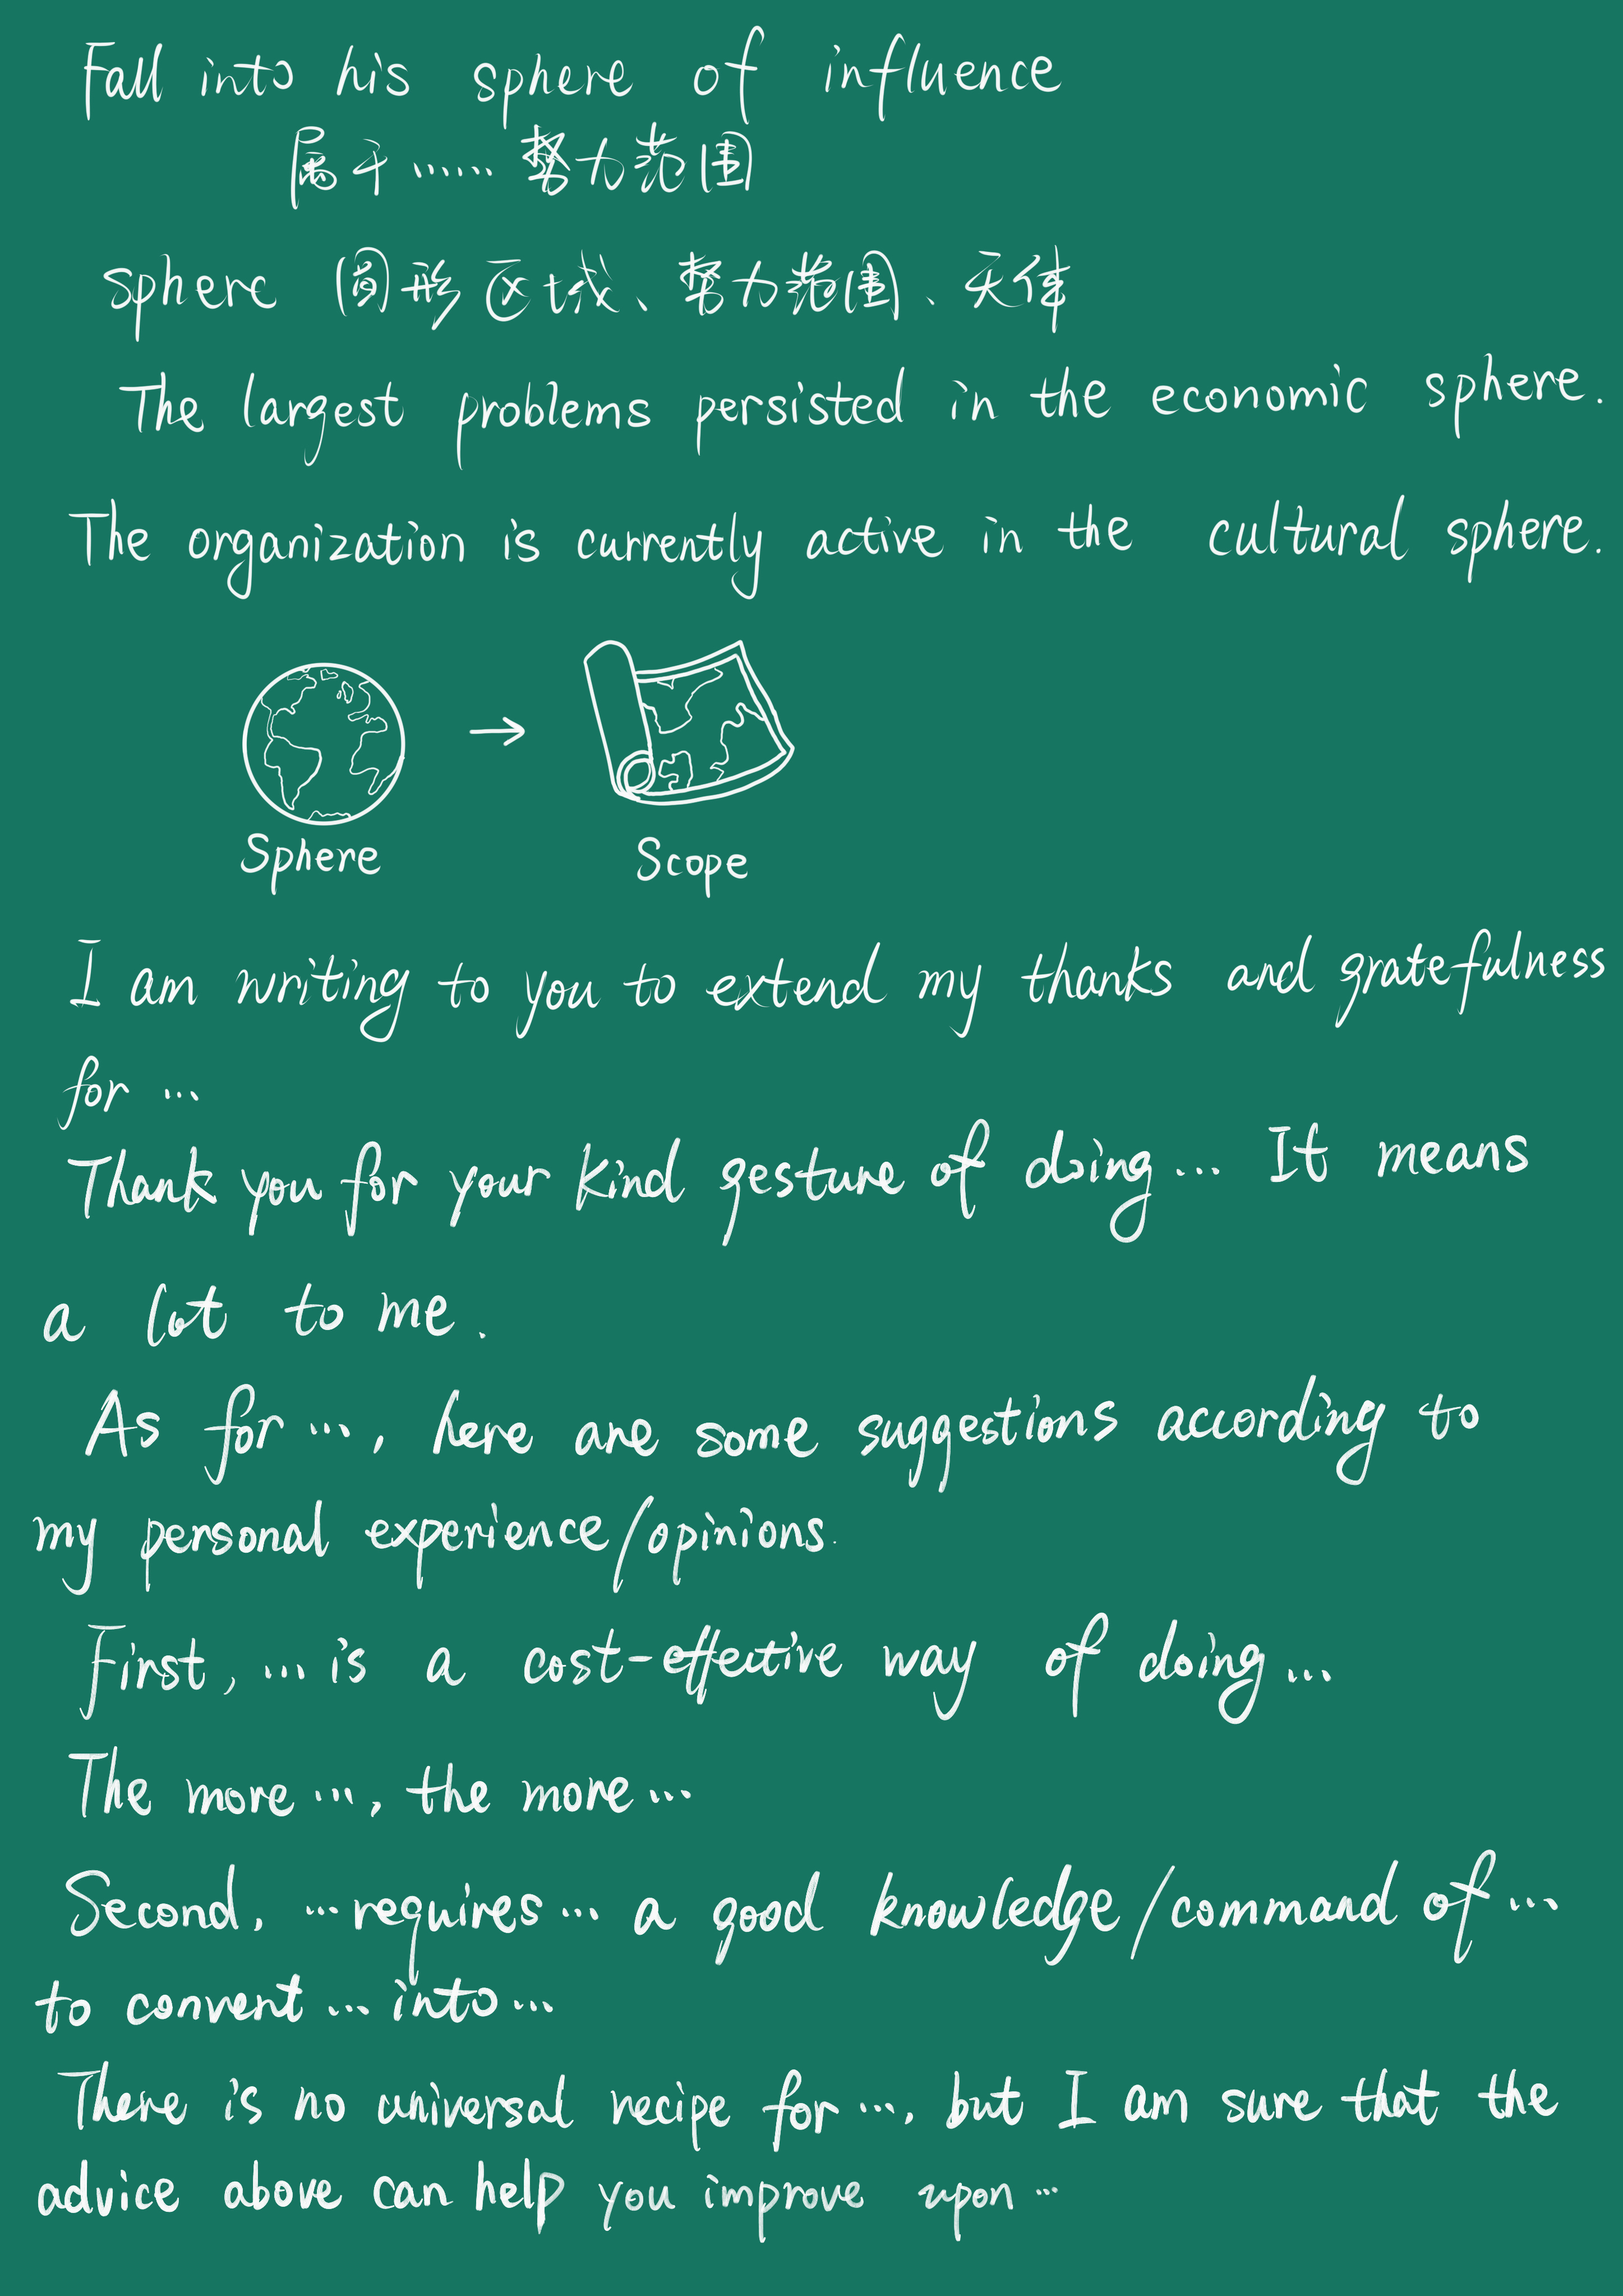 Fall into his sphere of influence
属于…… 势力范围
sphere 圆形区域、势力范围、天体
The largest problems persisted in the economic sphere.
The organization is currently active in the cultural sphere.
→
Sphere Scope
I am writing to you to extend my thanks and gratefulness
for …
Thank you for your kind gesture of doing… It means
a lot to me.
As for …, here are some suggestions according to
my personal experience/opinions.
First, … is a cost-effective way of doing…
The more …, the more …
Second, …requires… a good knowledge/command of …
to convert … into…
There is no universal recipe for …, but I am sure that the
advice above can help you improve upon …